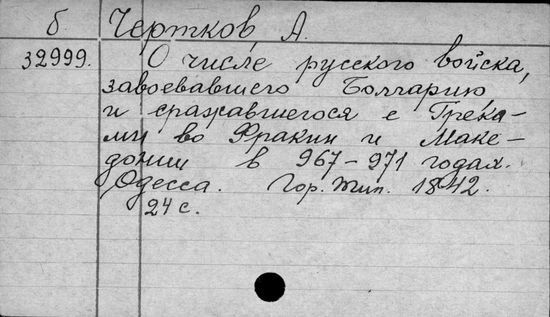 б. Чертков, А.
32999. О числе русского войска,
завоевавшего Болгарию
и сражавшегося с Грека-
ми во Фракии и Маке-
донии в 967-971 годах.
Одесса. Гор. тип. 1842.
24 с.